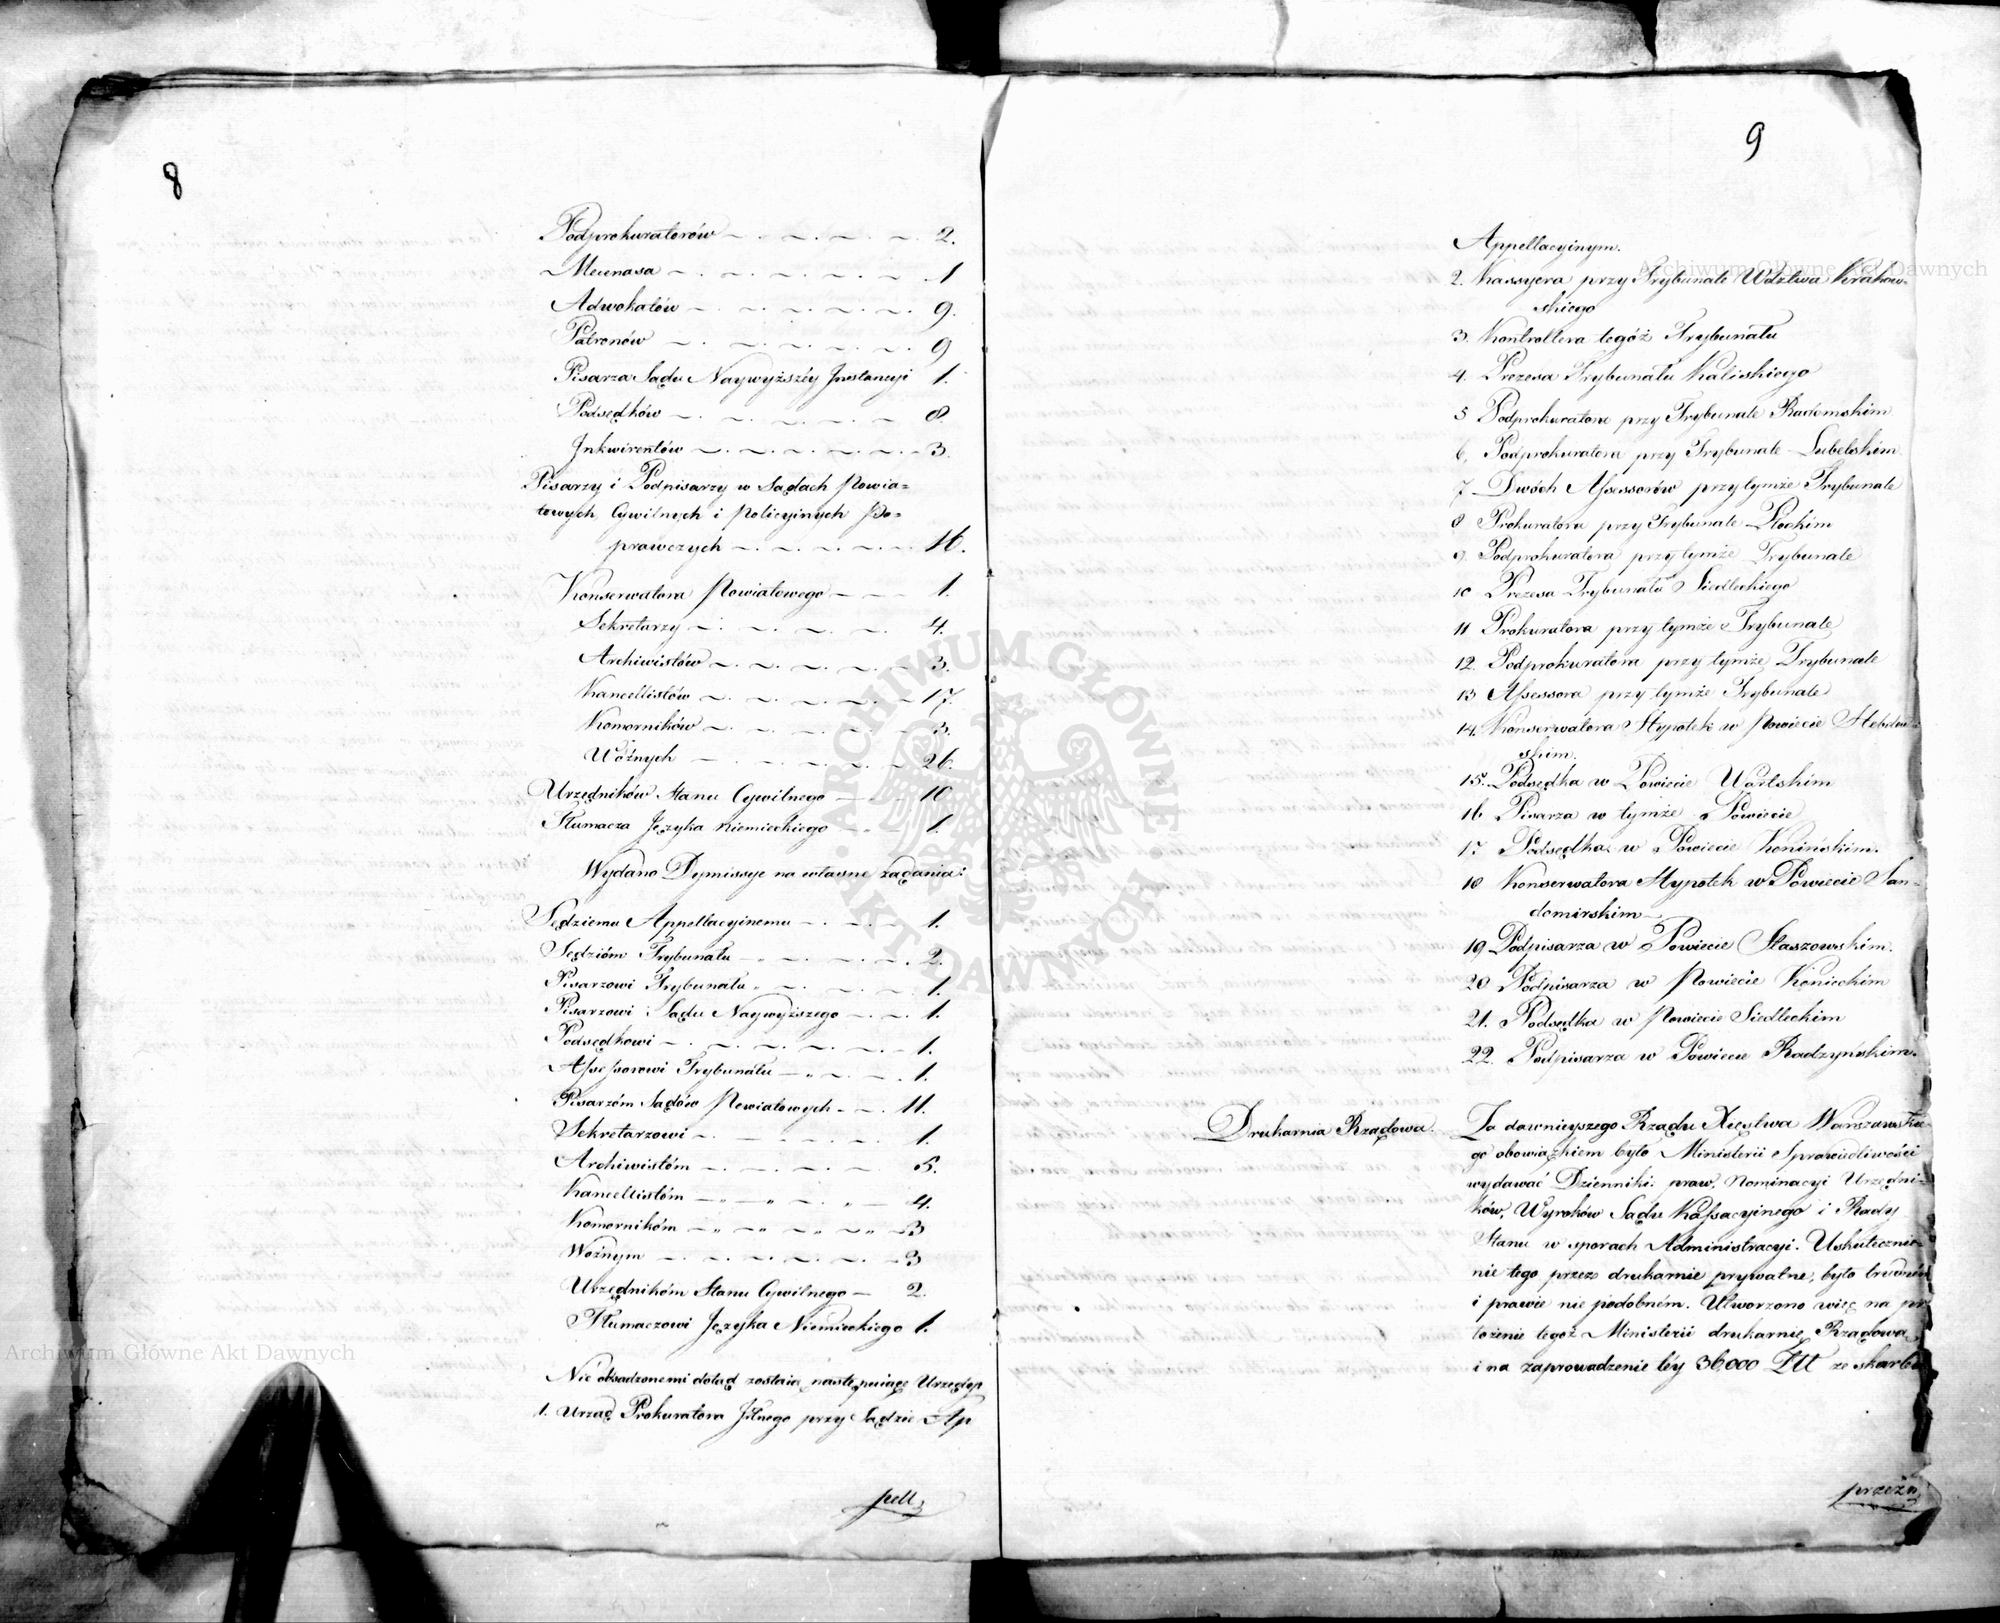 8
Podprokuratorów 2.
Mecenasa 1
Adwokatów 9.
Patronów 9
Pisarza Sądu Naywyższéy Instancyi 1.
Podsędków 8.
Inkwirentów 3.
Pisarzy i Podpisarzy w Sądach Powia=
towych, Cywilnych i Policyinych Po=
prawczych 16.
Konserwatora Powiatowego 1.
Sekretarzy 4.
Archiwistów 3.
Kancellistów 17.
Komorników 3.
Woźnych 26.
Urzędników Stanu Cywilnego 10
Tłumacza Języka Niemieckiego 1.
Wydano Dymissye na własne żądania:
Sędziemu Appellacyinemu 1.
Sędzióm Trybunału 2.
Pisarzowi Trybunału 1.
Pisarzowi Sądu Naywyższego 1.
Podsędkowi 1.
Assessorowi Trybunału 1.
Pisarzóm Sądów Powiatowych 11.
Sekretarzowi 1.
Archiwistóm 5.
Kancellistóm 4.
Komornikóm 3
Woźnym 3
Urzędnikóm Stanu Cywilnego 2.
Tłumaczowi Języka Niemieckiego 1.
Nie obsadzonemi dotąd zostaią następuiące Urzędy
1. Urząd Prokuratora Jlnego przy Sądzie Ap
pell
9
Appellacyinym.
2. Kassyera przy Trybunale Wdztwa Krakow=
skiego
3. Kontrollera tegóż Trybunału
4. Prezesa Trybunału Kaliskiego
5 Podprokuratora przy Trybunale Radomskim
6. Podprokuratora przy Trybunale Lubelskim
7 Dwóch Assessorów przy tymże Trybunale
8 Prokuratora przy Trybunale Płockim
9. Podprokuratora przy tymże Trybunale
10 Prezesa Trybunału Siedleckiego
11 Prokuratora przy tymże Trybunale
12. Podprokuratora przy tymże Trybunale
13 Assessora przy tymże Trybunale
14. Konserwatora Hypotek w Powiecie Hebdow=
skim.
15. Podsędka w Powiecie Wartskim
16 Pisarza w tymże Powiecie
17 Podsędka w Powiecie Konińskim.
18 Konserwatora Hypotek w Powiecie San=
domirskim
19 Podpisarza w Powiecie Staszowskim.
20 Podpisarza w Powiecie Konieckim
21. Podsędka w Powiecie Siedleckim
22. Podpisarza w Powiecie Radzyńskim.
Drukarnia Rządowa.
Za dawnieyszego Rządu Xięstwa Warszawskie=
go obowiązkiem było Ministerii Sprawiedliwości
wydawać Dzienniki praw, Nominacyi Urzędni=
ków, Wyroków Sądu Kassacyinego i Rady
Stanu w sporach Administracyi. Uskutecznie=
nie tego przez drukarnie prywatne, było trudném
i prawie nie podobném. Utworzono więc na prze
łożenie tegoż Ministerii drukarnię Rządową,
i na zaprowadzenie téy 36,000 Złt ze skarbu
przezn
ARCHIWUM GŁÓWNE AKT DAWNYCH
Archiwum Główne Akt Dawnych
Archiwum Główne Akt Dawnych